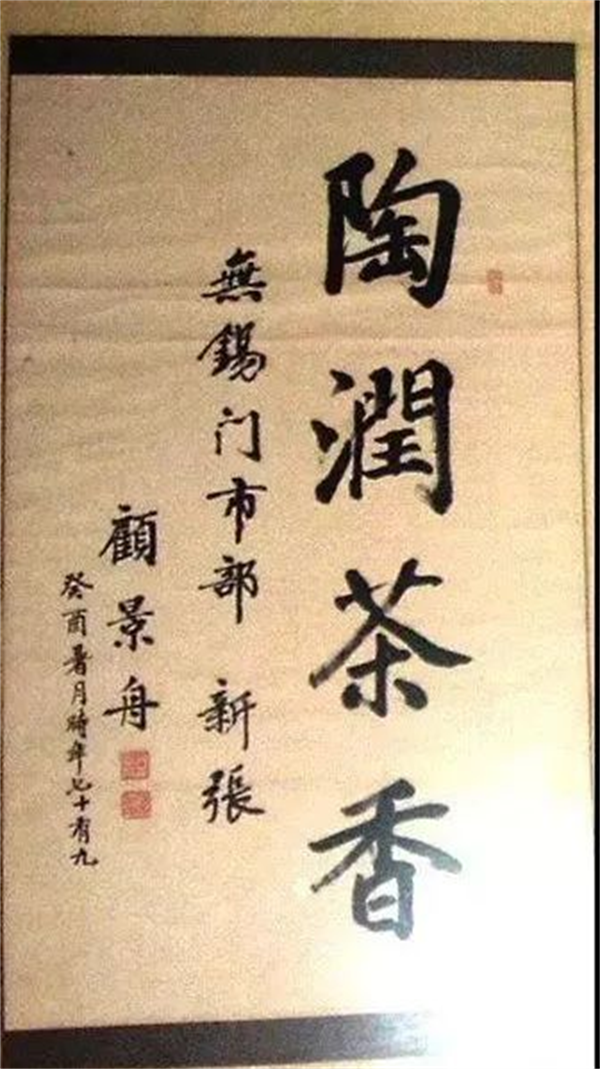 陶潤茶香
無錫门市部 新張
顧景舟
癸酉暑月時年七十有九